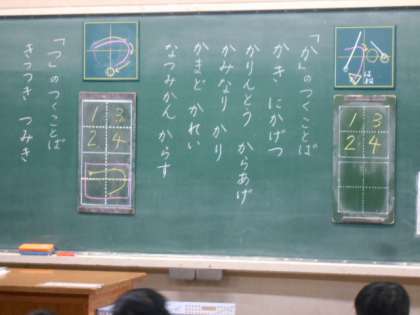 「か」のつくことば
かき にかげつ
かりんとう からあげ
かみなり かり
かまど かれい
なつみかん からす
1 3
2 4
「つ」のつくことば
きつつき つみき
1 3
2 4
つ